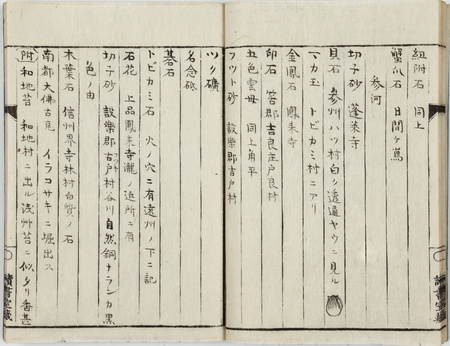 紐附石 同上
蟹爪石 日間ヶ嶌
参河
切子砂 蓬莱寺
貝石 参州ハツ村白ク透通ヤウニ見ル
マカ玉 トビカミ村ニアリ
金鳳石 鳳来寺
印石 宝郡吉良庄戸良村
五色雲母 同上角平
フツト砂 設樂郡吉戸村
ツク礦
名念砥
碁石
トビカミ石 火ノ穴ニ有遠州ノ下ニ記
石花 上品鳳来寺瀧ノ近所ニ有
切子砂 設樂郡古戸村谷川自然銅ナランカ黒
色ノ由
木葉石 信州界寺林村白質ノ石
南都大佛古瓦 イラコサキニ堀出ス
附 和地苔 和地村ニ出ル浅艸苔ニ似タリ香甚
讀書室蔵
讀書室蔵